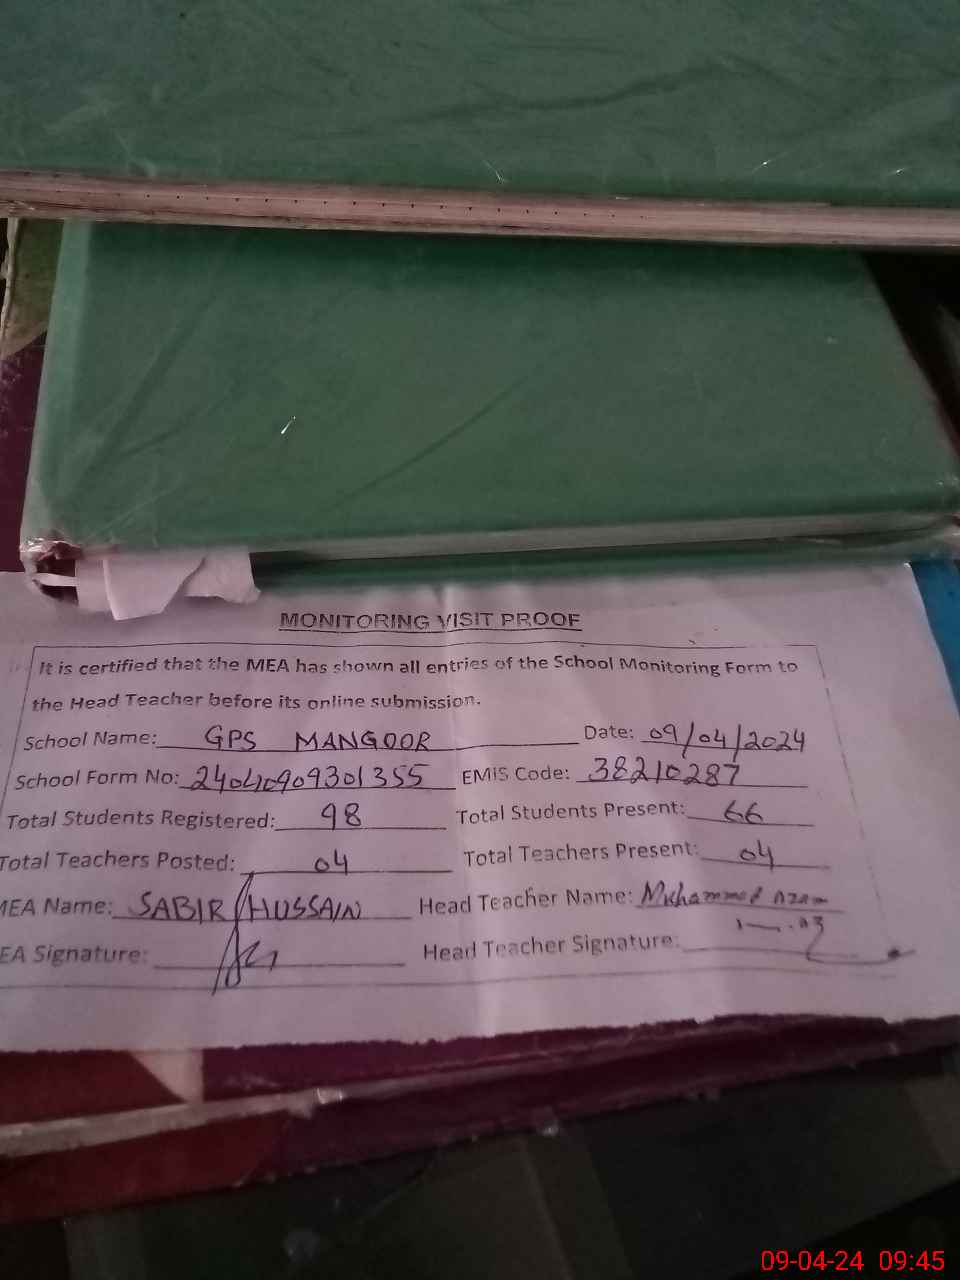 MONITORING VISIT PROOF
It is certified that the MEA has shown all entries of the School Monitoring Form to
the Head Teacher before its online submission.
School Name: GPS MANGOOR Date: 09/04/2024
School Form No: 24040909301355 EMIS Code: 38210287
Total Students Registered: 98 Total Students Present: 66
Total Teachers Posted: 04 Total Teachers Present: 04
MEA Name: SABIR HUSSAIN Head Teacher Name: Muhammad Azam
EA Signature: Head Teacher Signature:
09-04-24 09:45